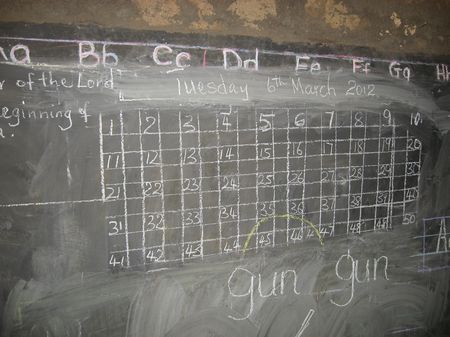 Bb Cc Dd Ee Ff Gg
of the Lord
Tuesday 6th March 2012
eginning of
1 2 3 4 5 6 7 8 9 10
11 12 13 14 15 16 17 18 19 20
21 22 23 24 25 26 27 28
31 32 33 34 35 36 37 38
41 42 43 44 45 46 47 48 50
gun gun